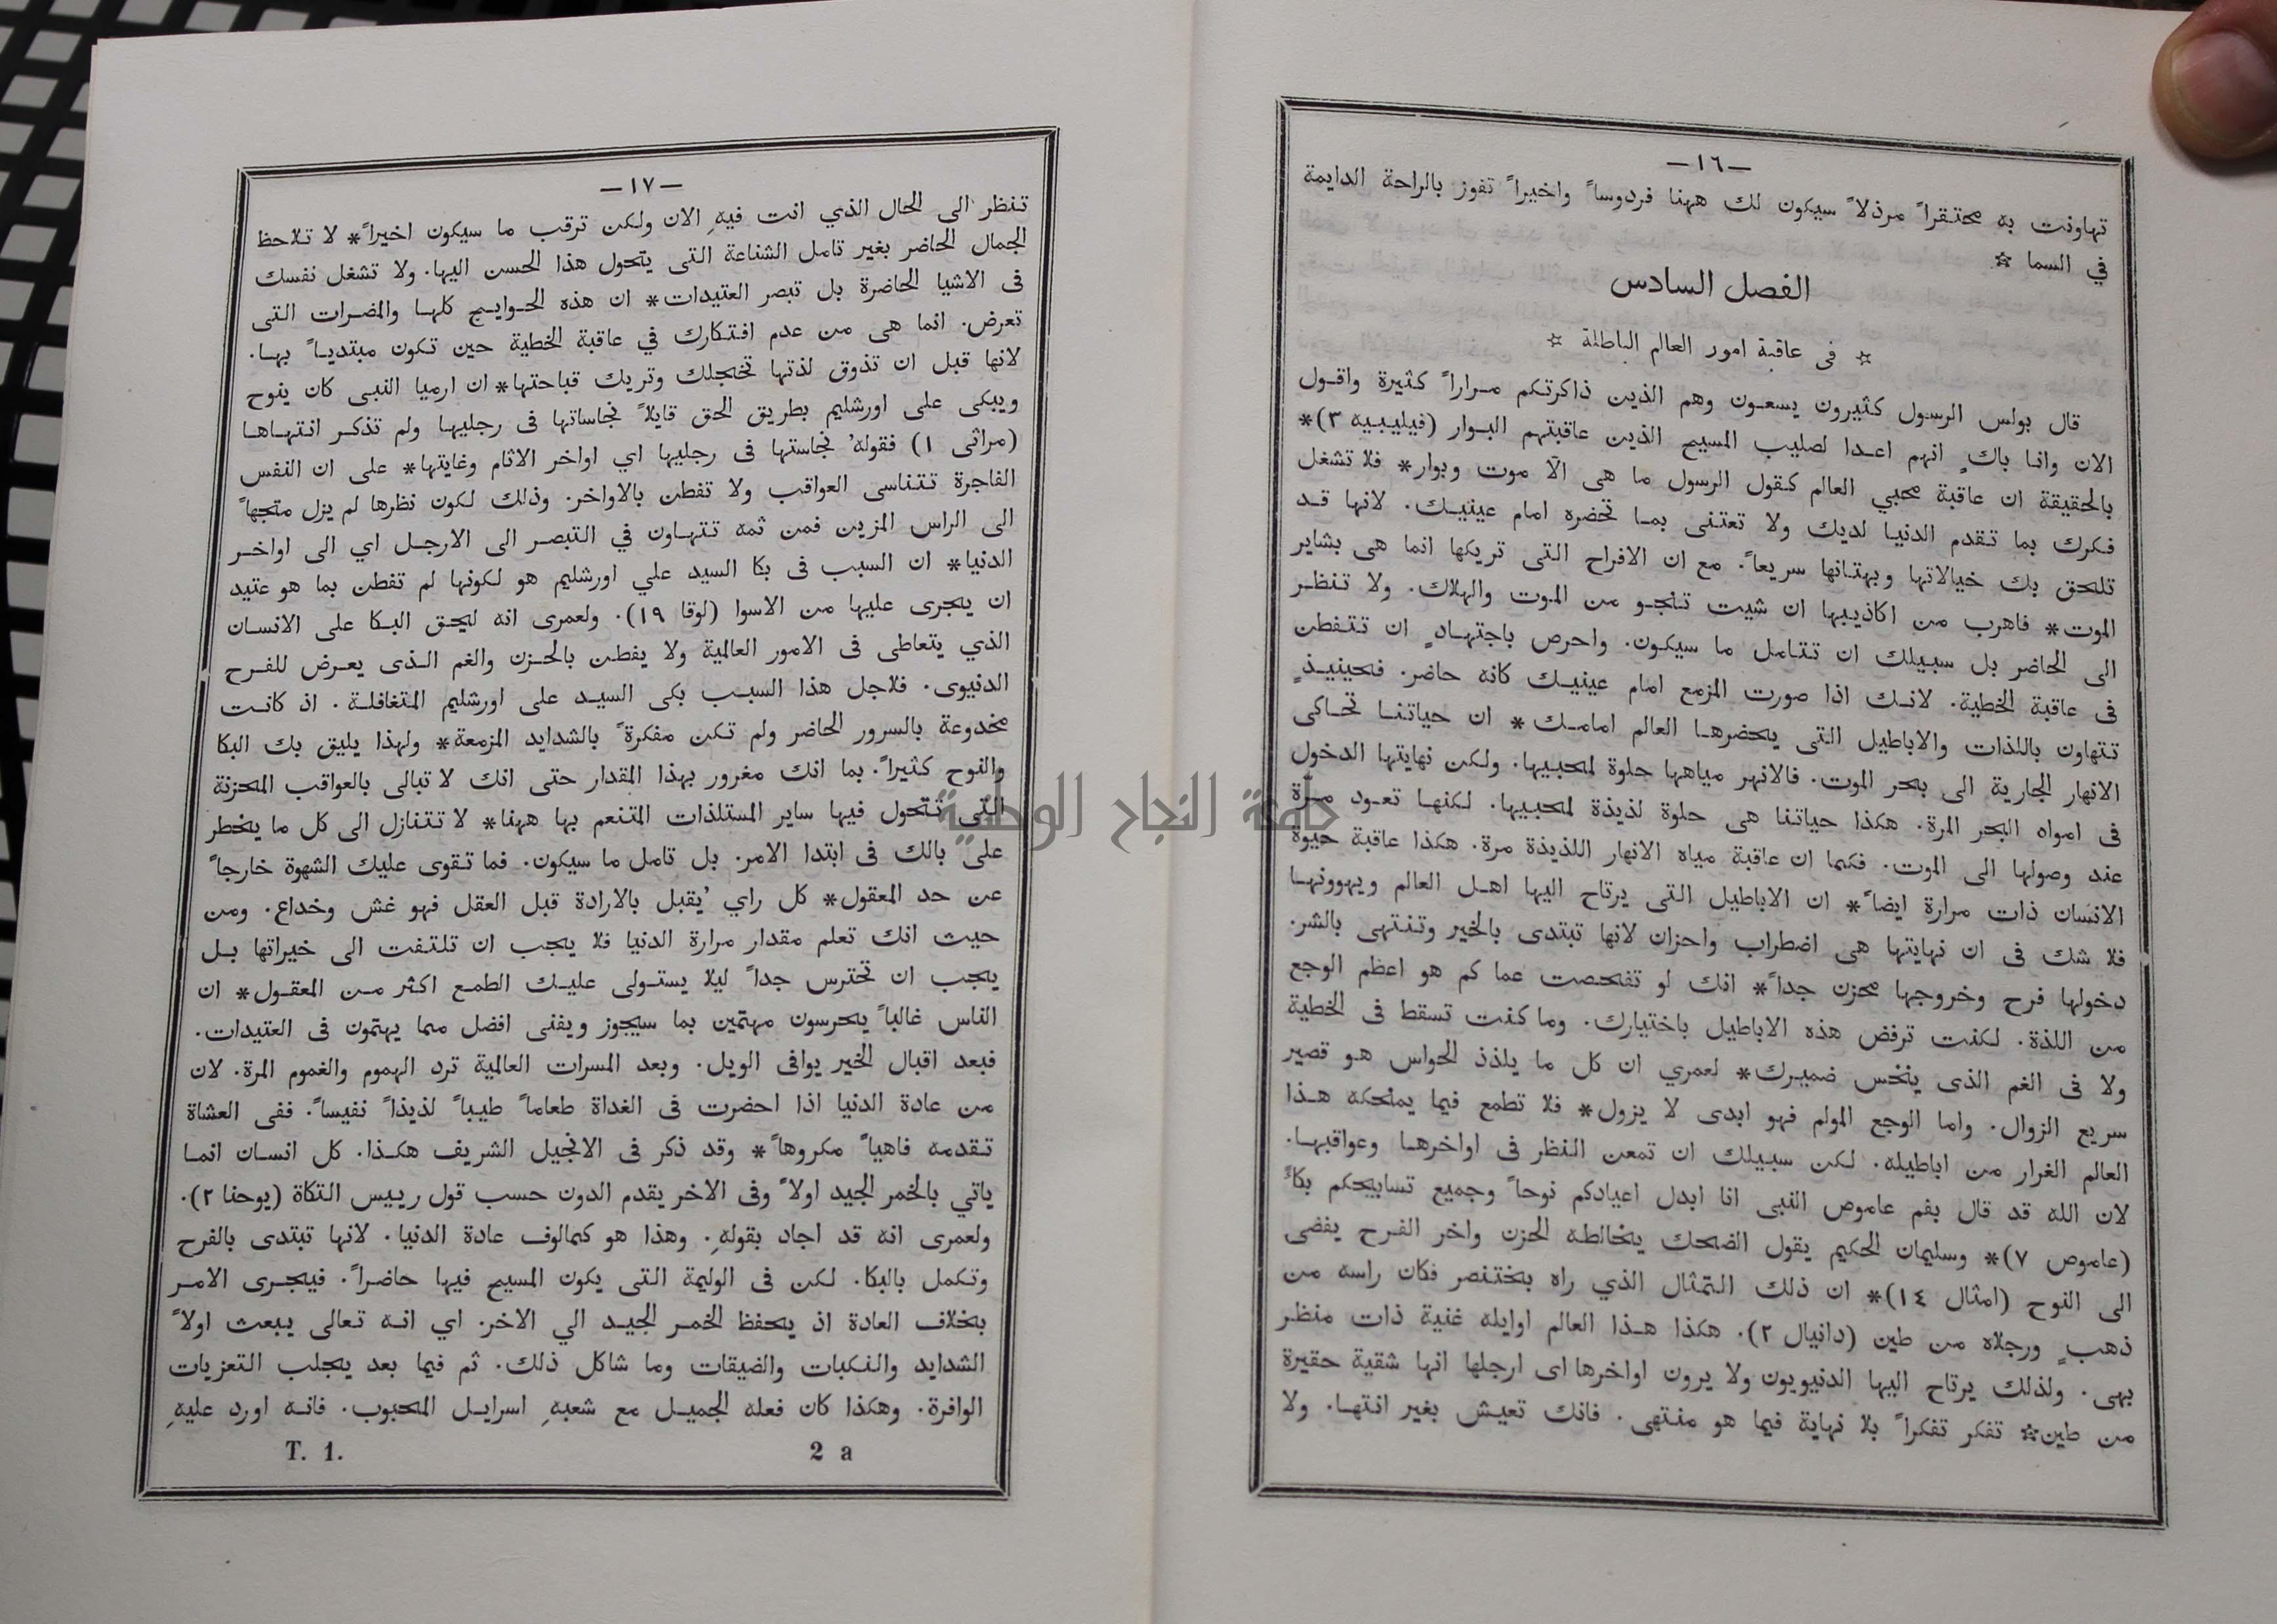 —١٦—
تهاونت به محتقراً مرذلاً سيكون لك ههنا فردوساً واخيراً تفوز بالراحة الدايمة
في السما ☆
الفصل السادس
☆ فى عاقبة امور العالم الباطلة ☆
قال بولس الرسول كثيرون يسعون وهم الذين ذاكرتكم مراراً كثيرة واقول
الان وانا باكٍ انهم اعدا لصليب المسيح الذين عاقبتهم البوار (فيليبيه ٣)*
بالحقيقة ان عاقبة محبي العالم كقول الرسول ما هى الّا موت وبوار* فلا تشغل
فكرك بما تقدم الدنيا لديك ولا تعتنى بما تحضره امام عينيك. لانها قد
تلحق بك خيالاتها وبهتانها سريعاً. مع ان الافراح التى تريكها انما هى بشاير
الموت* فاهرب من اكاذيبها ان شيت تنجو من الموت والهلاك. ولا تنظر
الى الحاضر بل سبيلك ان تتامل ما سيكون. واحرص باجتهادٍ ان تتفطن
فى عاقبة الخطية. لانك اذا صورت المزمع امام عينيك كانه حاضر. فحينيذٍ
تتهاون باللذات والاباطيل التى يحضرها العالم امامك* ان حياتنا تحاكى
الانهار الجارية الى بحر الموت. فالانهر مياهها حلوة لمحبيها. ولكن نهايتها الدخول
فى امواه البحر المرة. هكذا حياتنا هى حلوة لذيذة لمحبيها. لكنها تعود مرة
عند وصولها الى الموت. فكما ان عاقبة مياه الانهار اللذيذة مرة. هكذا عاقبة حيوة
الانسان ذات مرارة ايضاً* ان الاباطيل التى يرتاح اليها اهل العالم ويهوونها
فلا شك فى ان نهايتها هى اضطراب واحزان لانها تبتدى بالخير وتنتهى بالشر.
دخولها فرح وخروجها محزن جداً* انك لو تفحصت عما كم هو اعظم الوجع
من اللذة. لكنت ترفض هذه الاباطيل باختيارك. وما كنت تسقط فى الخطية
ولا فى الغم الذى ينخس ضميرك* لعمري ان كل ما يلذذ الحواس هو قصير
سريع الزوال. واما الوجع المولم فهو ابدى لا يزول* فلا تطمع فيما يمنحكه هذا
العالم الغرار من اباطيله. لكن سبيلك ان تمعن النظر فى اواخرها وعواقبها.
لان الله قد قال بفم عاموص النبى انا ابدل اعيادكم نوحاً وجميع تسابيحكم بكآً
(عاموص ٧)* وسليمان الحكيم يقول الضحك يخالطه الحزن واخر الفرح يفضى
الى النوح (امثال ١٤)* ان ذلك التمثال الذي راه بختنصر فكان راسه من
ذهبٍ ورجلاه من طين (دانيال ٢). هكذا هذا العالم اوايله غنية ذات منظر
بهى. ولذلك يرتاح اليها الدنيويون ولا يرون اواخرها اى ارجلها انها شقية حقيرة
من طين☆ تفكر تفكراً بلا نهاية فيما هو منتهى. فانك تعيش بغير انتها. ولا
—١٧—
تنظر الى الحال الذي انت فيهِ الان ولكن ترقب ما سيكون اخيراً* لا تلاحظ
الجمال الحاضر بغير تامل الشناعة التى يتحول هذا الحسن اليها. ولا تشغل نفسك
فى الاشيا الحاضرة بل تبصر العتيدات* ان هذه الحوايج كلها والمضرات التى
تعرض. انما هى من عدم افتكارك في عاقبة الخطية حين تكون مبتدياً بها.
لانها قبل ان تذوق لذتها تخجلك وتريك قباحتها* ان ارميا النبى كان ينوح
ويبكى على اورشليم بطريق الحق قايلاً نجاساتها فى رجليها ولم تذكر انتهاها
(مراثى ١) فقولهُ نجاستها فى رجليها اي اواخر الاثام وغايتها* على ان النفس
الفاجرة تتناسى العواقب ولا تفطن بالاواخر. وذلك لكون نظرها لم يزل متجهاً
الى الراس المزين فمن ثمه تتهاون في التبصر الى الارجل اي الى اواخر
الدنيا* ان السبب فى بكا السيد علي اورشليم هو لكونها لم تفطن بما هو عتيد
ان يجرى عليها من الاسوا (لوقا ١٩). ولعمرى انه ليحق البكا على الانسان
الذي يتعاطى فى الامور العالمية ولا يفطن بالحزن والغم الذى يعرض للفرح
الدنيوى. فلاجل هذا السبب بكى السيد على اورشليم المتغافلة. اذ كانت
مخدوعة بالسرور الحاضر ولم تكن مفكرةً بالشدايد المزمعة* ولهذا يليق بك البكا
والنوح كثيراً. بما انك مغرور بهذا المقدار حتى انك لا تبالى بالعواقب المحزنة
التى تتحول فيها ساير المستلذات المتنعم بها ههنا* لا تتنازل الى كل ما يخطر
على بالك فى ابتدا الامر. بل تامل ما سيكون. فما تقوى عليك الشهوة خارجاً
عن حد المعقول* كل راي يُقبل بالارادة قبل العقل فهو غش وخداع. ومن
حيث انك تعلم مقدار مرارة الدنيا فلا يجب ان تلتفت الى خيراتها بل
يجب ان تحترس جداً ليلا يستولى عليك الطمع اكثر من المعقول* ان
الناس غالباً يحرسون مهتمين بما سيجوز ويفنى افضل مما يهتمون فى العتيدات.
فبعد اقبال الخير يوافى الويل. وبعد المسرات العالمية ترد الهموم والغموم المرة. لان
من عادة الدنيا اذا احضرت فى الغداة طعاماً طيباً لذيذاً نفيساً. ففى العشاة
تقدمه فاهياً مكروهاً* وقد ذكر فى الانجيل الشريف هكذا. كل انسان انما
ياتي بالخمر الجيد اولاً وفى الاخر يقدم الدون حسب قول رييس التكاة (يوحنا ٢).
ولعمرى انه قد اجاد بقولهِ. وهذا هو كمالوف عادة الدنيا. لانها تبتدى بالفرح
وتكمل بالبكا. لكن فى الوليمة التى يكون المسيح فيها حاضراً. فيجرى الامر
بخلاف العادة اذ يحفظ الخمر الجيد الي الاخر. اي انه تعالى يبعث اولاً
الشدايد والنكبات والضيقات وما شاكل ذلك. ثم فيما بعد يجلب التعزيات
الوافرة. وهكذا كان فعله الجميل مع شعبهِ اسرايل المحبوب. فانه اورد عليهِ
T. 1. 2 a
جامعة النجاح الوطنية